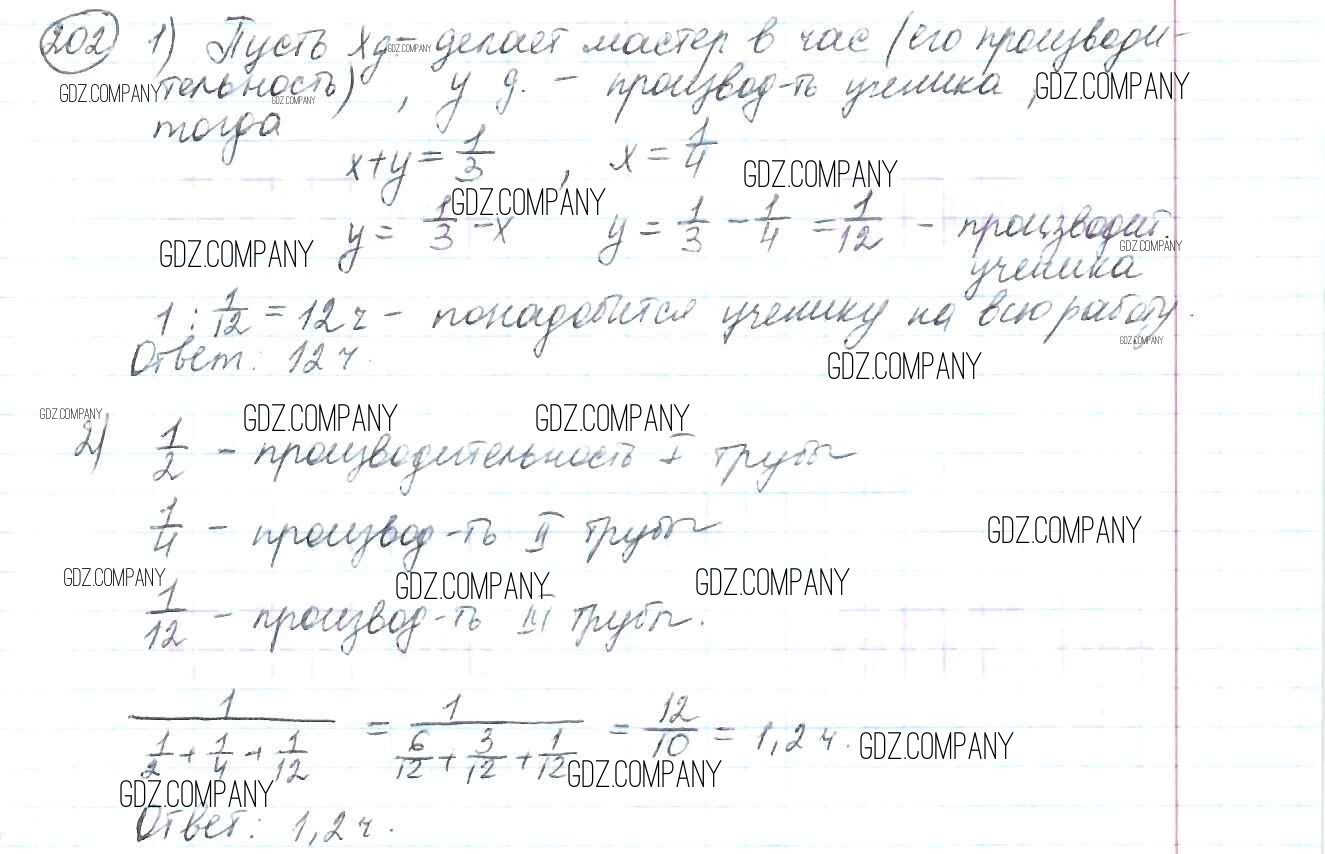 202 1) Пусть x д - делает мастер в час (его производи-
GDZ.COMPANY
GDZ.COMPANY тельность), y д. - производ-ть ученика, GDZ.COMPANY
GDZ.COMPANY
тогда
x+y = 1/3 , x = 1/4
GDZ.COMPANY
GDZ.COMPANY
y = 1/3 - x y = 1/3 - 1/4 = 1/12 - производит.
GDZ.COMPANY GDZ.COMPANY
ученика
1 : 1/12 = 12 ч - понадобится ученику на всю работу.
GDZ.COMPANY
Ответ: 12 ч.
GDZ.COMPANY
GDZ.COMPANY GDZ.COMPANY GDZ.COMPANY
2) 1/2 - производительность I трубы
1/4 - производ-ть II трубы
GDZ.COMPANY
GDZ.COMPANY GDZ.COMPANY GDZ.COMPANY
1/12 - производ-ть III трубы.
1/(1/2 + 1/4 + 1/12) = 1/(6/12 + 3/12 + 1/12) = 12/10 = 1,2 ч.
GDZ.COMPANY
GDZ.COMPANY
GDZ.COMPANY
Ответ: 1,2 ч.